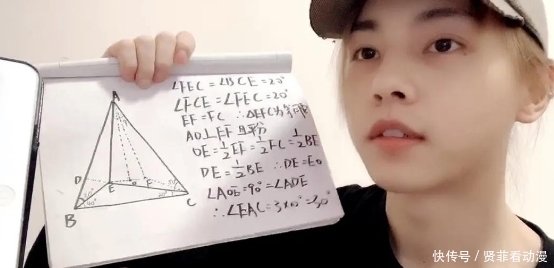 ∠FEC=∠BCE=20°
∠FCE=∠FEC=20°
EF=FC ∴△EFC为等
AO⊥EF 且平分
OE=½EF=½FC=½BE
DE=½BE ∴DE=EO
∠AOE=90°=∠ADE
∴∠EAC=3×10°=30°
A
D
E
F
B
C
快传号／贤菲看动漫